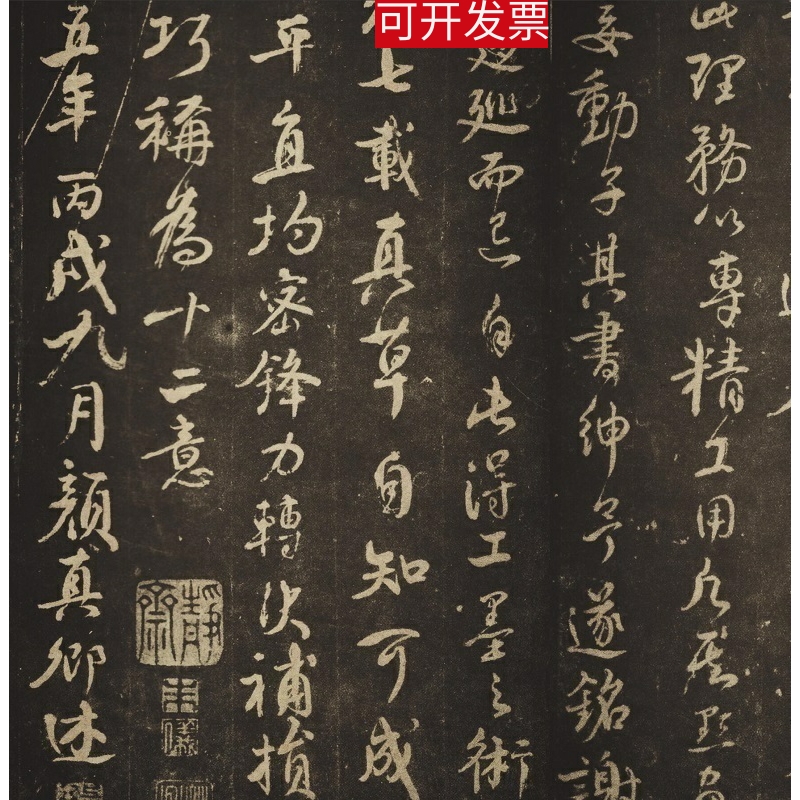 可开发票
此理務以專精工用
妄動子其書紳予遂銘謝
巡而已自此得工墨之術
七載真草自知可成
平直均密鋒力轉決補損
巧稱為十二意
五年丙戌九月顏真卿述
靜齋